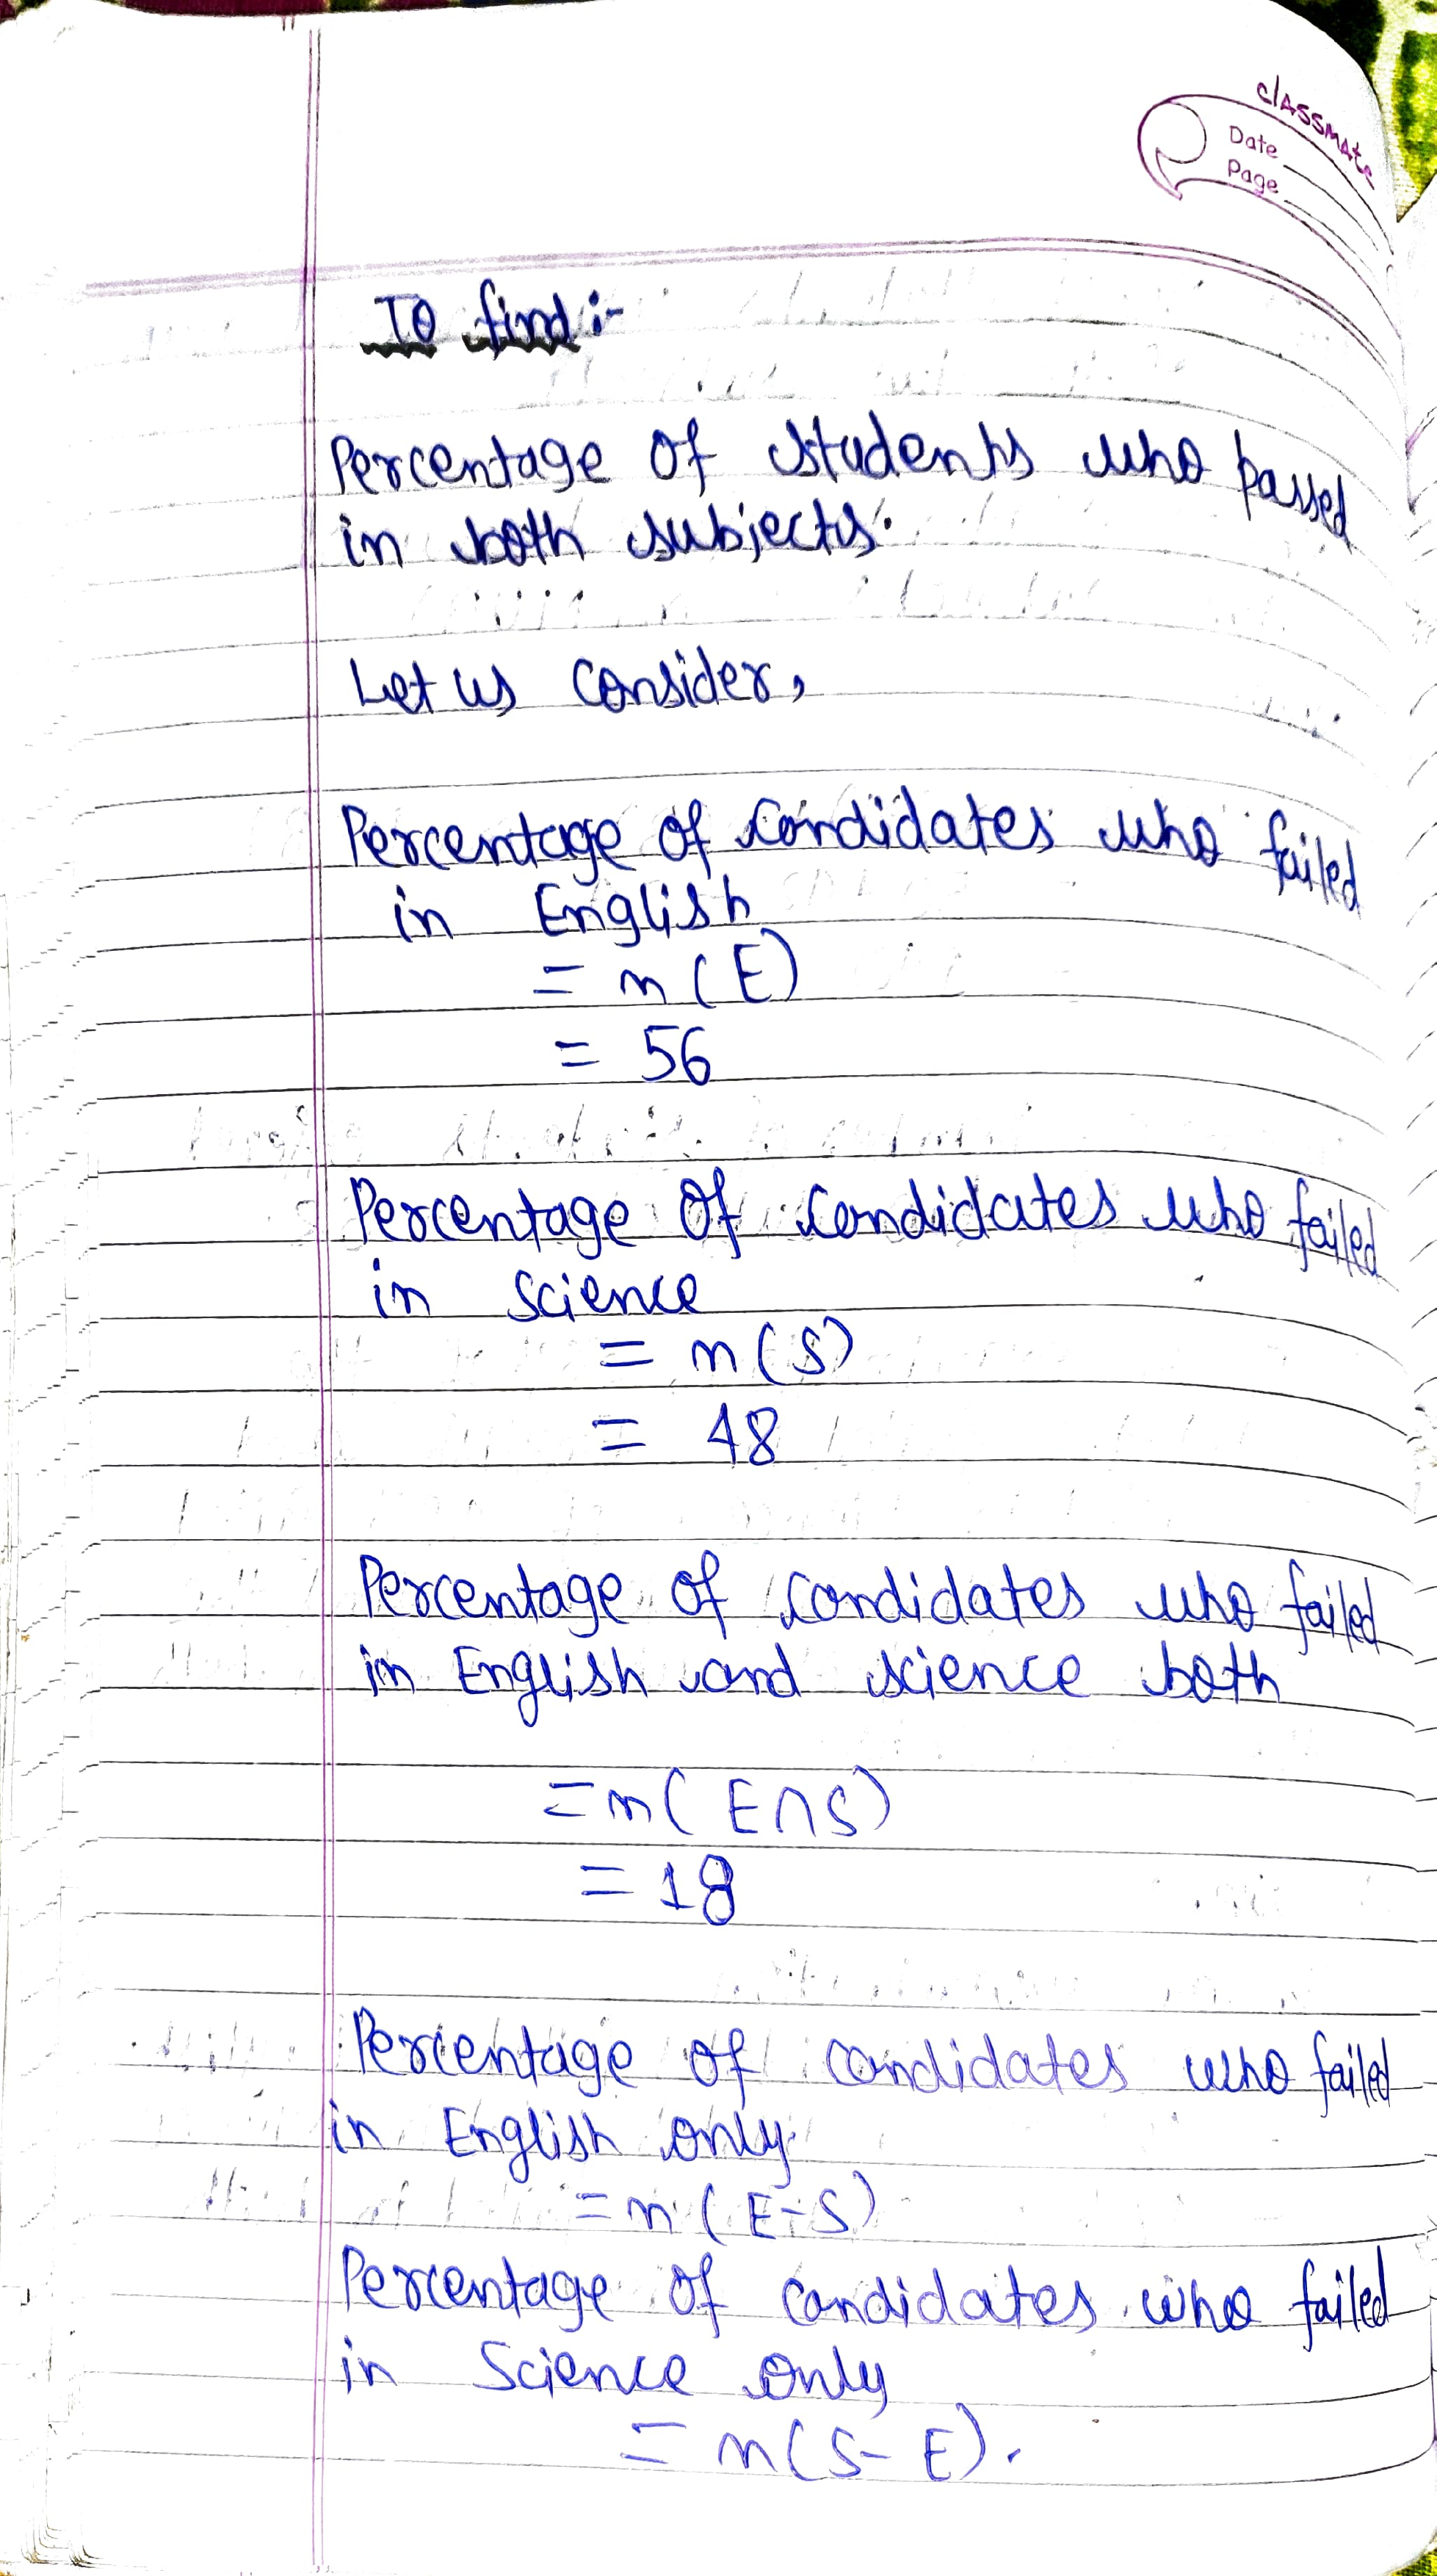 classmate
Date
Page
To find :-
Percentage of students who passed
in both subjects.
Let us consider,
Percentage of candidates who failed
in English
= n (E)
= 56
Percentage of candidates who failed
in science
= n (S)
= 48
Percentage of candidates who failed
in English and science both
= n ( E ∩ S)
= 18
Percentage of candidates who failed
in English only
= n ( E - S)
Percentage of candidates who failed
in Science only
= n (S - E).